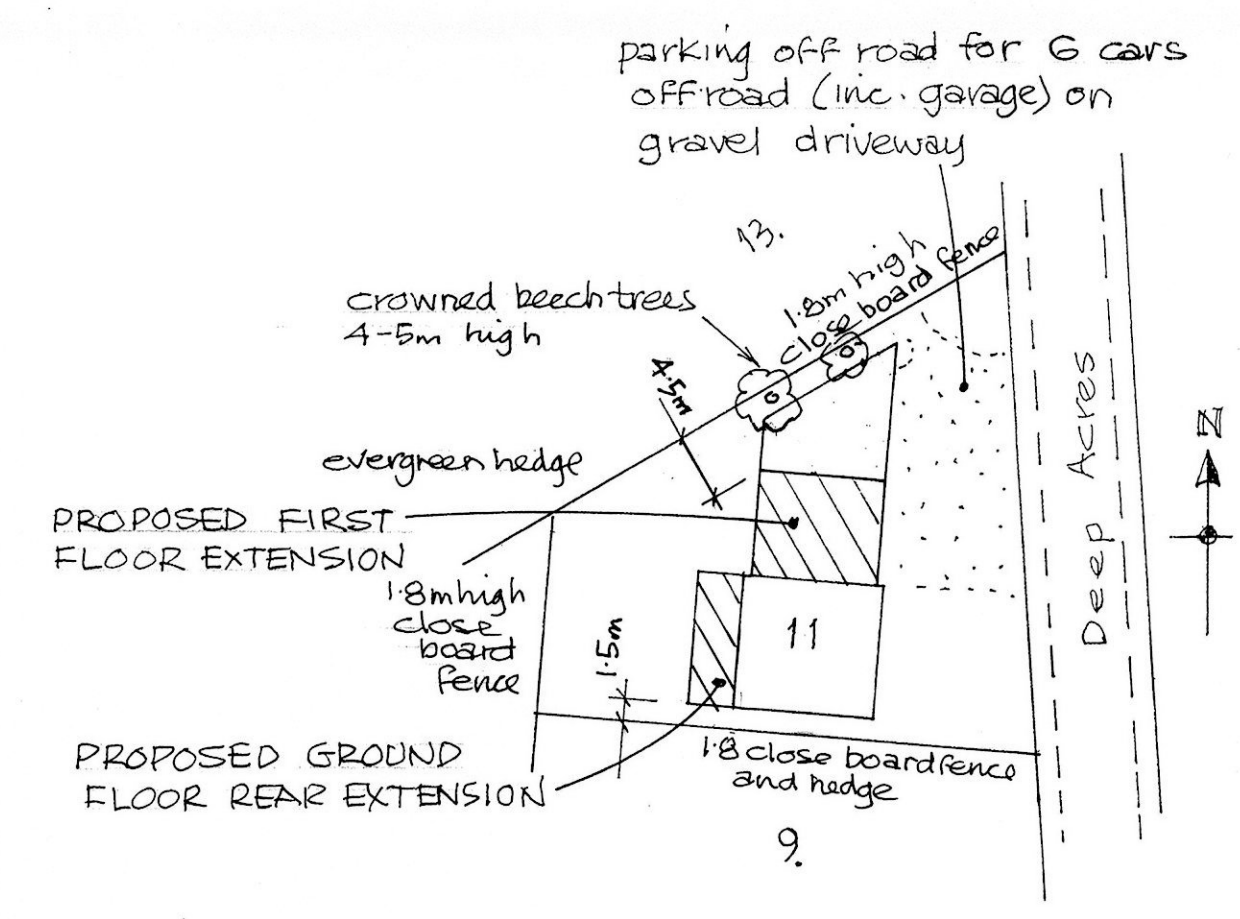 parking off road for 6 cars
off road (inc. garage) on
gravel driveway
13.
1.8m high
close board fence
crowned beech trees
4-5m high
4.5m
evergreen hedge
PROPOSED FIRST
FLOOR EXTENSION
1.8m high
close
board
fence
1.5m
11
Deep Acres
N
PROPOSED GROUND
FLOOR REAR EXTENSION
1.8 close board fence
and hedge
9.